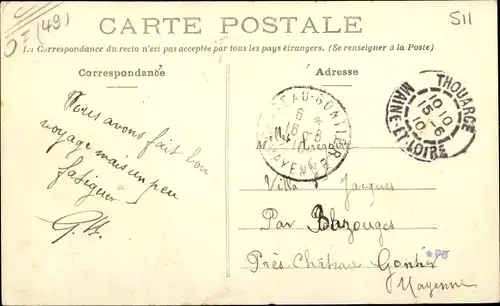 (49)
511
CARTE POSTALE
La Correspondance du recto n'est pas acceptée par tous les pays étrangers. (Se renseigner à la Poste)
Correspondance
Adresse
THOUARCÉ
10 10
15 - 6
10
MAINE-ET-LOIRE
EAU-GONTIER
MAYENNE
Nous avons fait bon
voyage mais un peu
fatiguer
Melle
Villa Jacques
Par Bazouges
Près Château Gontier
Mayenne